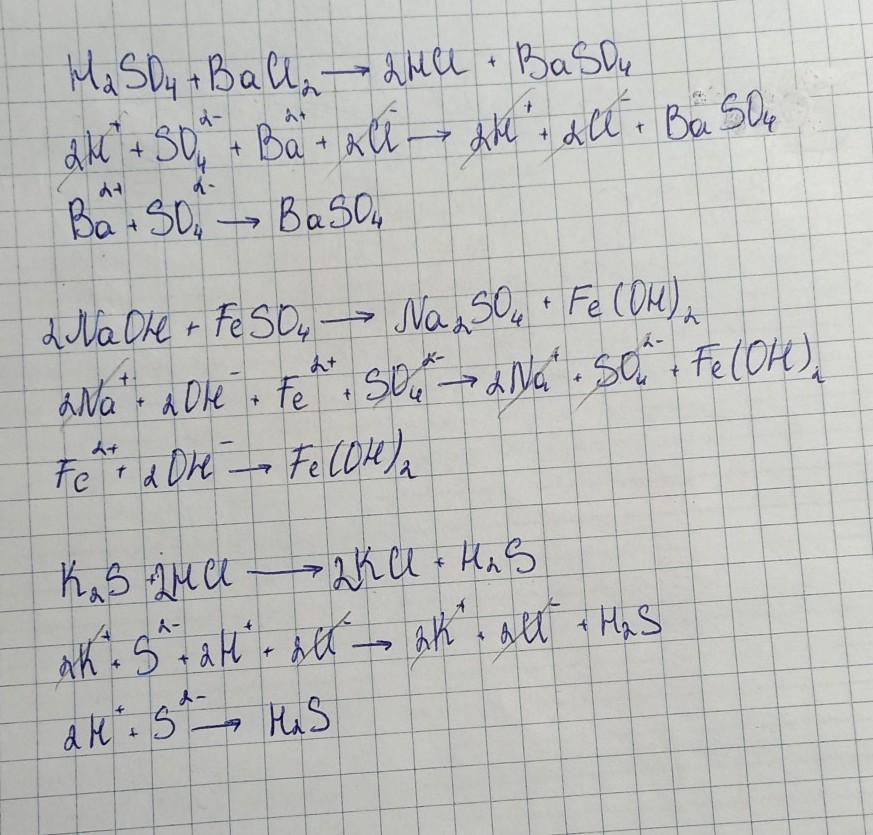 H₂SO₄ + BaCl₂ → 2HCl + BaSO₄
2H⁺ + SO₄²⁻ + Ba²⁺ + 2Cl⁻ → 2H⁺ + 2Cl⁻ + BaSO₄
Ba²⁺ + SO₄²⁻ → BaSO₄
2NaOH + FeSO₄ → Na₂SO₄ + Fe(OH)₂
2Na⁺ + 2OH⁻ + Fe²⁺ + SO₄²⁻ → 2Na⁺ + SO₄²⁻ + Fe(OH)₂
Fe²⁺ + 2OH⁻ → Fe(OH)₂
K₂S + 2HCl → 2KCl + H₂S
2K⁺ + S²⁻ + 2H⁺ + 2Cl⁻ → 2K⁺ + 2Cl⁻ + H₂S
2H⁺ + S²⁻ → H₂S